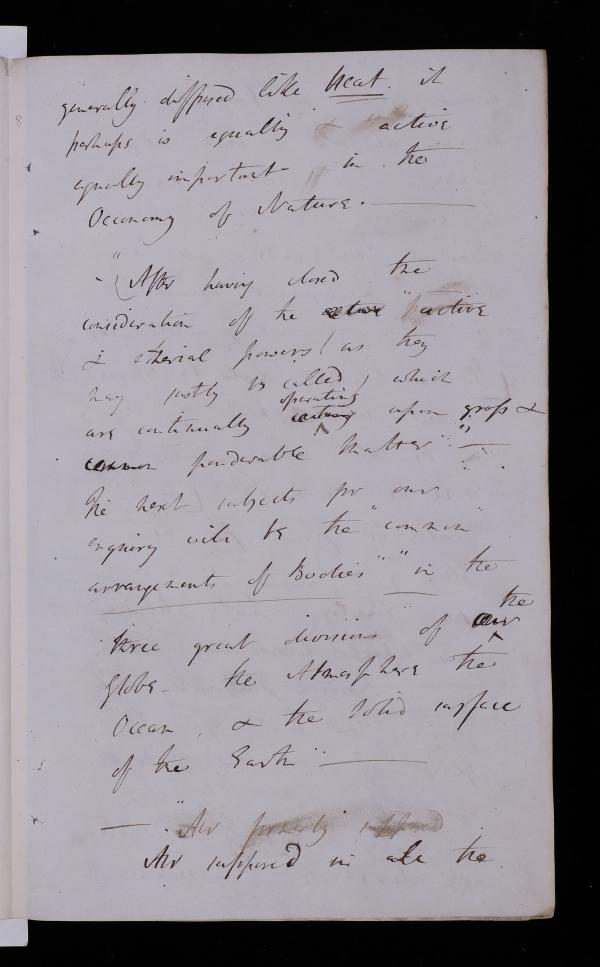 generally diffused like Heat. it
perhaps is equally & active
equally important in the
Oeconomy of Nature.
"(After having closed the
consideration of the active "active
& etherial powers (as they
may justly be called) which
operating
are continually acting upon gross &
common ponderable Matter" -
the next subjects for our
enquiry will be the "common"
arrangements of Bodies" "in the
the
three great divisions of our
Globe - the Atmosphere the
Ocean, & the solid surface
of the Earth"
"Air formerly supposed
Air supposed in all the